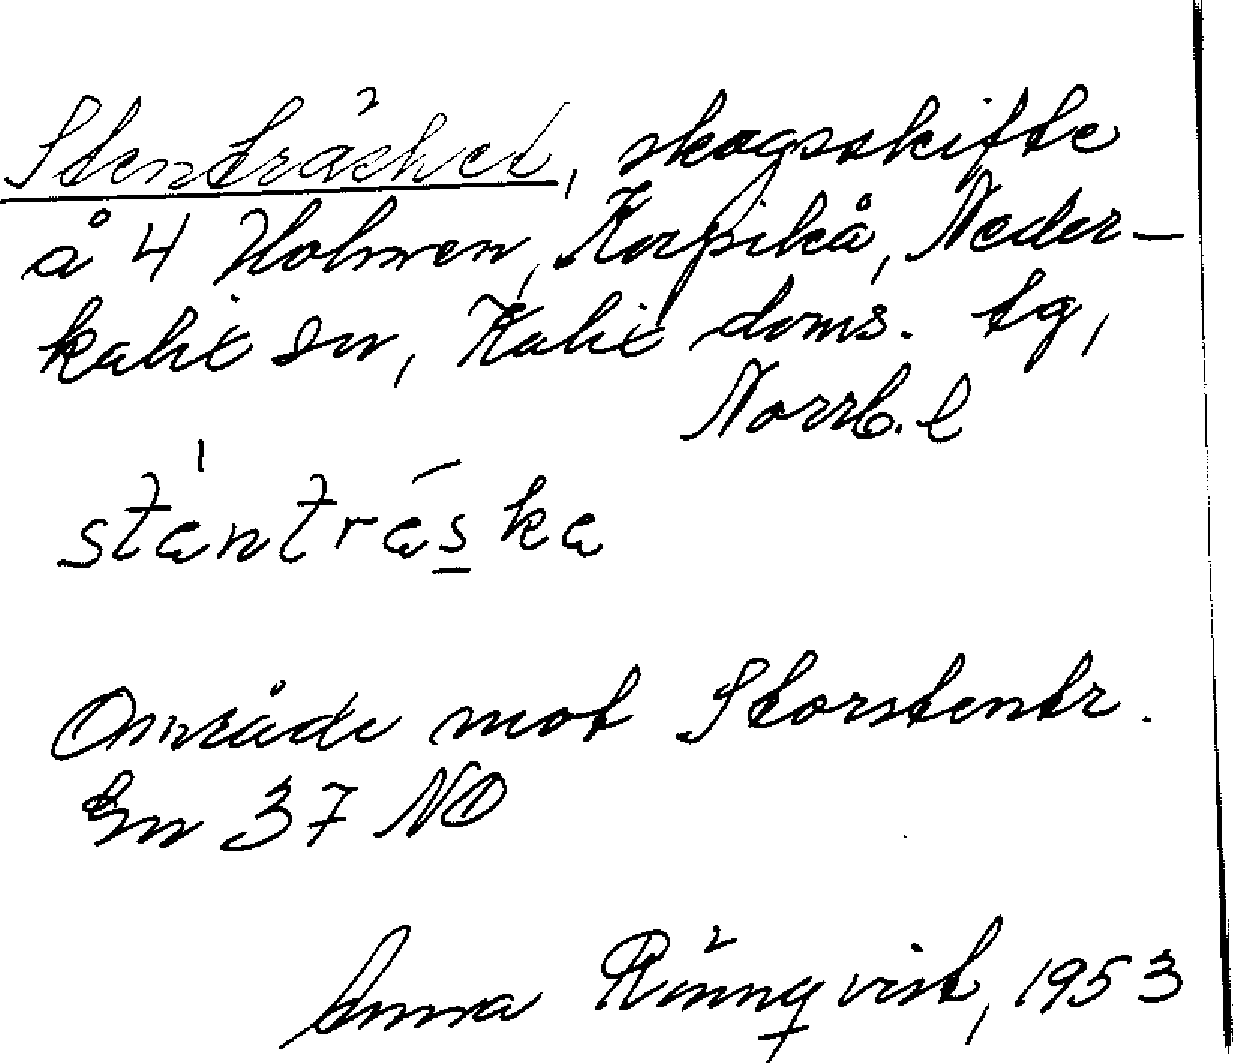 Stenträsket, skogsskifte
å 4 Holmen, Korpikå, Neder-
kalix sn, Kalix doms. tg,
Norrb. l
stæntræska
Område mot Storstentr.
Em 37 NO
Anna Rönnqvist, 1953